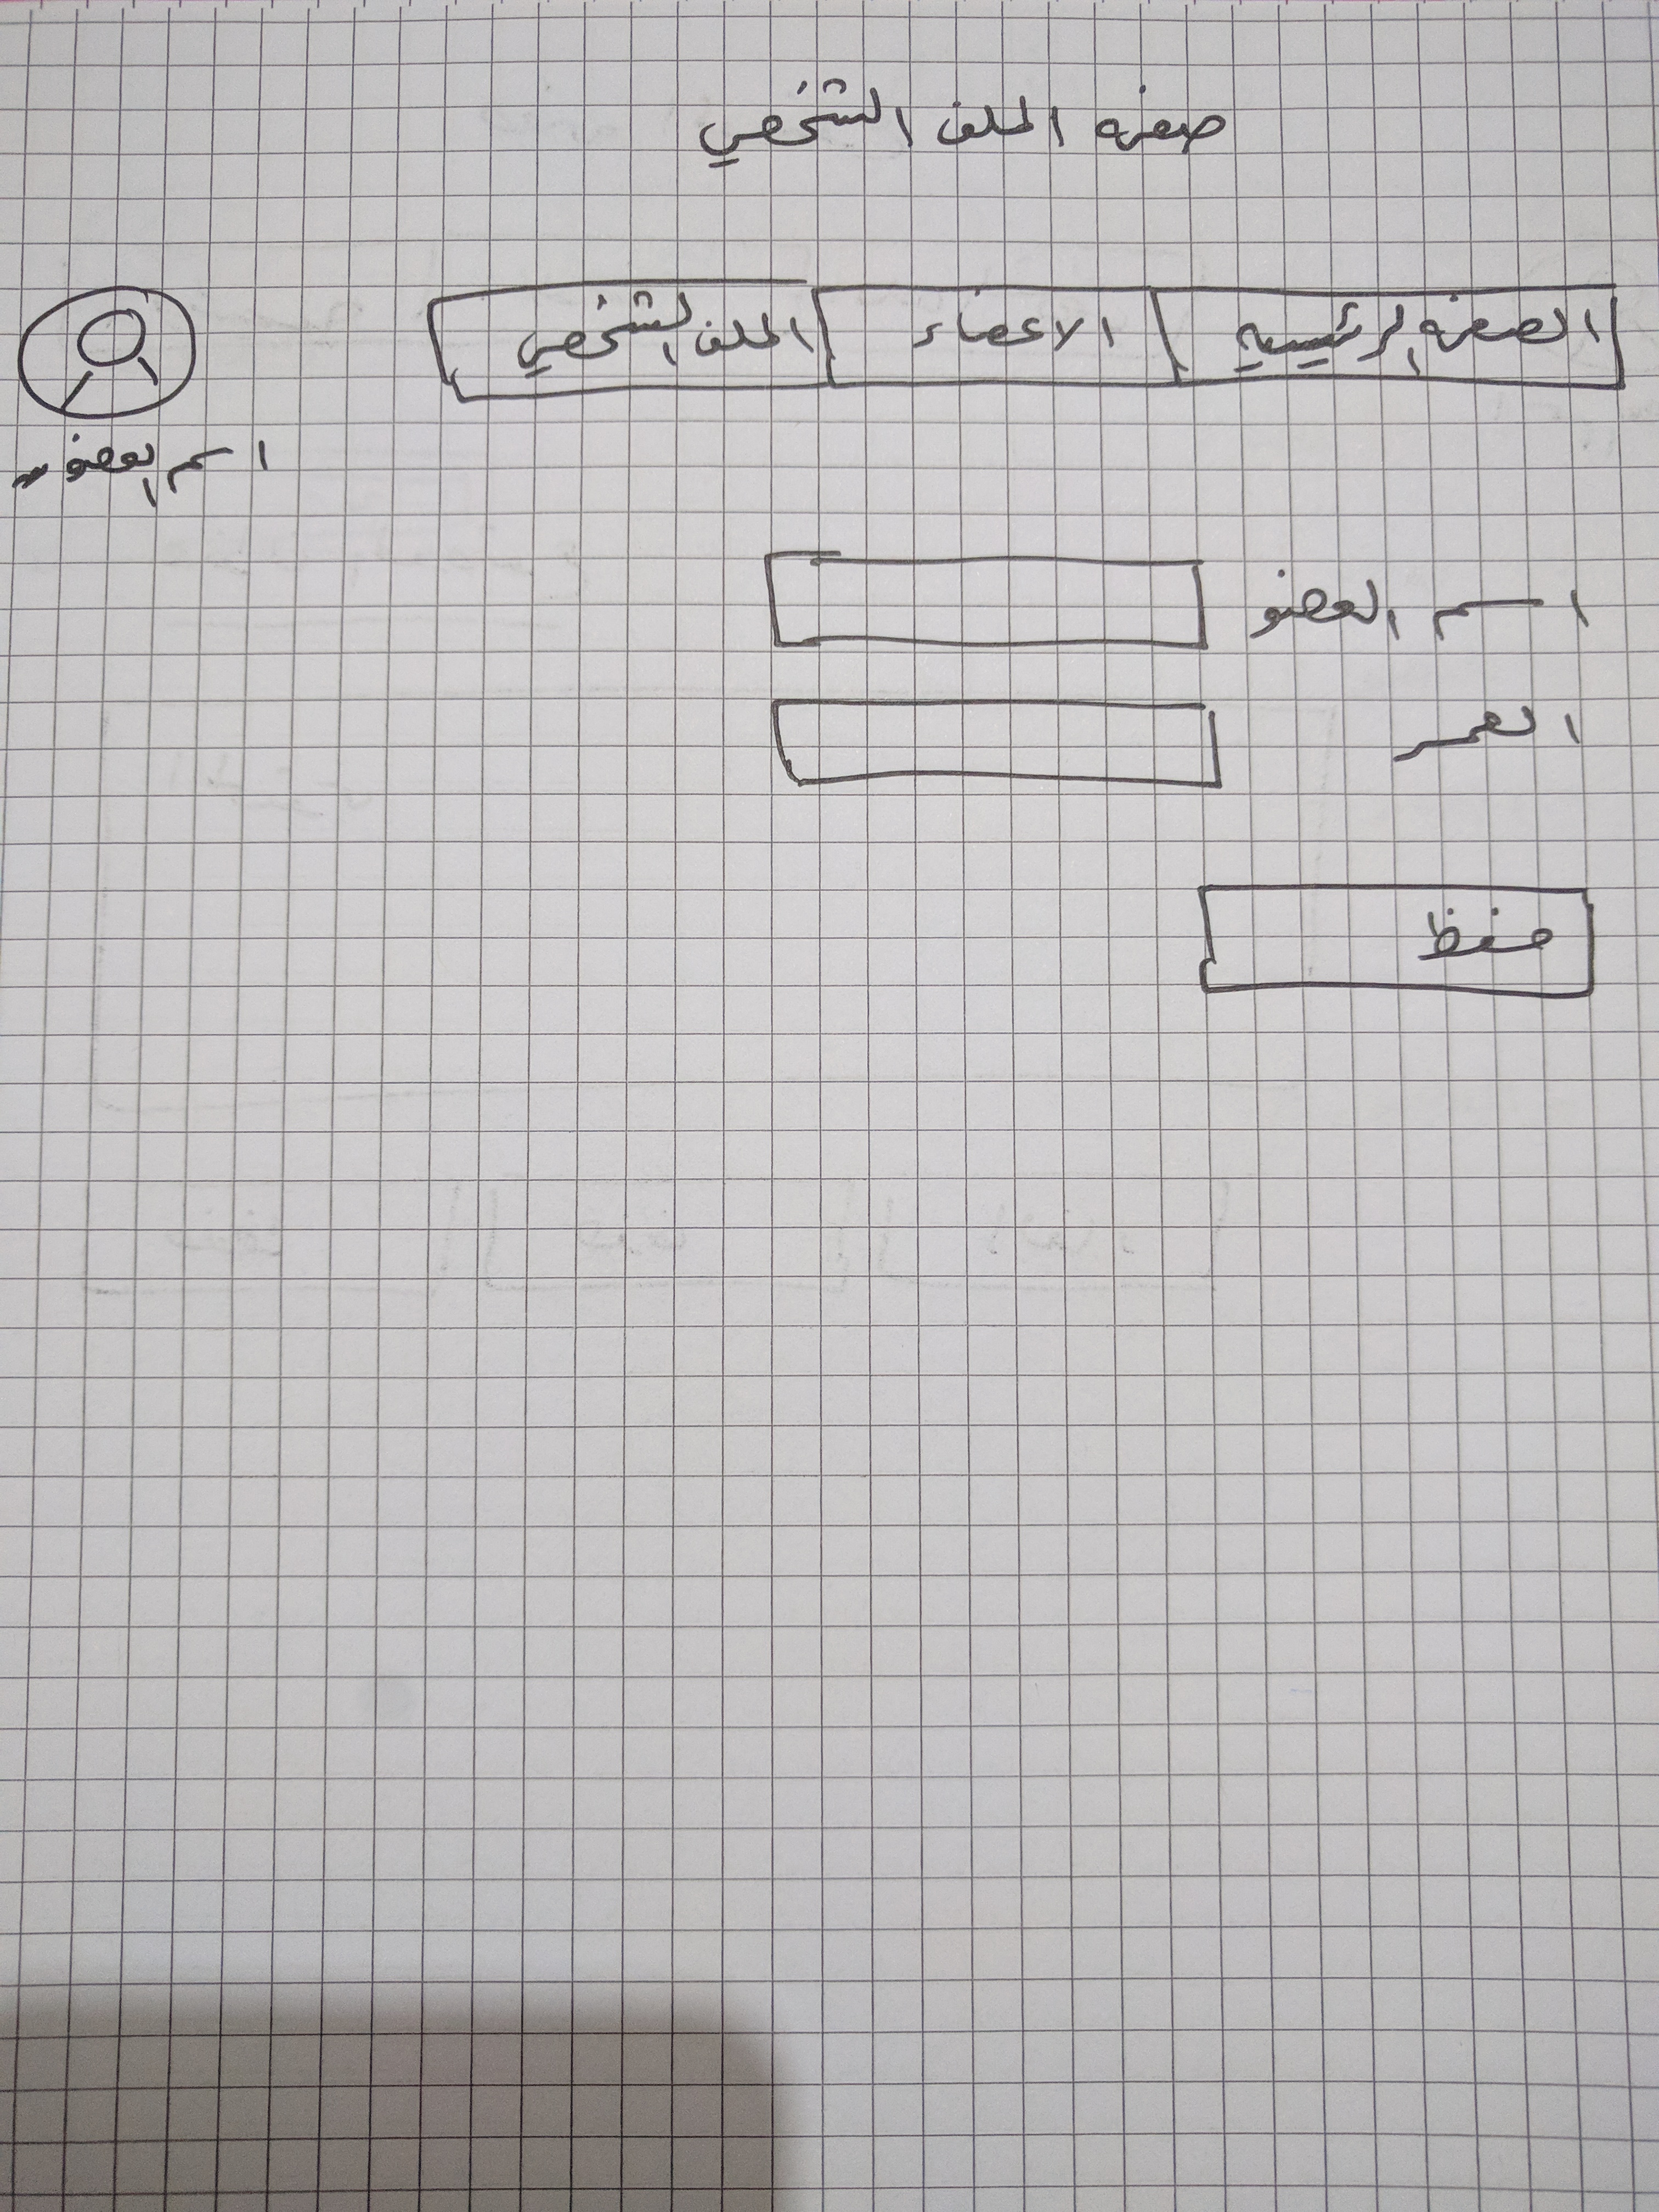 صفحه الملف الشخصي
الصفحه الرئيسيه الاعضاء الملف الشخصي
اسم العضو
اسم العضو
العمر
حفظ